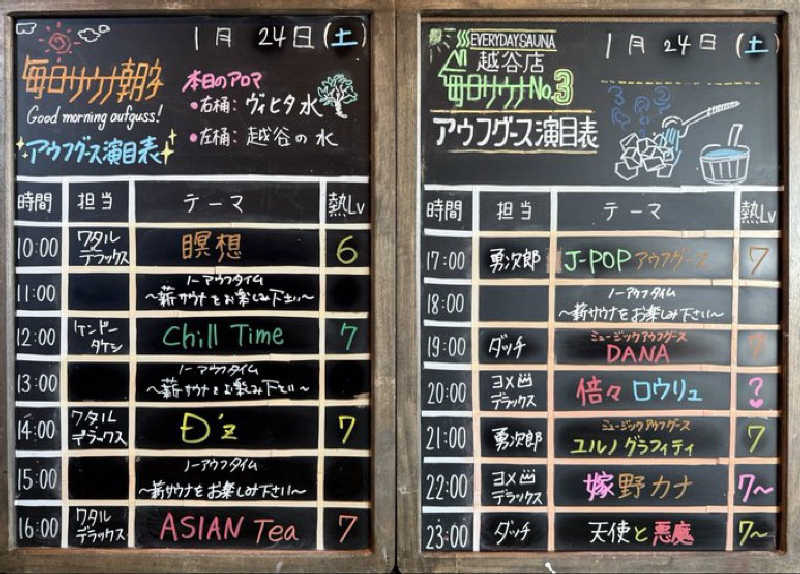 1月 24日(土)
毎日サウナ朝子
Good morning aufguss!
アウフグース演目表
本日のアロマ
•右桶: ヴィヒタ水
•左桶: 越谷の水
時間 担当 テーマ 熱Lv
10:00 ワタルデラックス 瞑想 6
11:00 ノーアウフタイム
〜薪サウナをお楽しみ下さい〜
12:00 ケンドータケシ Chill Time 7
13:00 ノーアウフタイム
〜薪サウナをお楽しみ下さい〜
14:00 ワタルデラックス D'z 7
15:00 ノーアウフタイム
〜薪サウナをお楽しみ下さい〜
16:00 ワタルデラックス ASIAN Tea 7
EVERYDAY SAUNA
越谷店
毎日サウナNo.3
アウフグース演目表
1月 24日(土)
時間 担当 テーマ 熱Lv
17:00 勇次郎 J-POP アウフグース 7
18:00 ノーアウフタイム
〜薪サウナをお楽しみ下さい〜
19:00 ダッチ ミュージックアウフグース
DANA 7
20:00 ヨメデラックス 倍々ロウリュ ?
21:00 勇次郎 ミュージックアウフグース
ユルノグラフィティ 7
22:00 ヨメデラックス 嫁野カナ 7〜
23:00 ダッチ 天使と悪魔 7〜